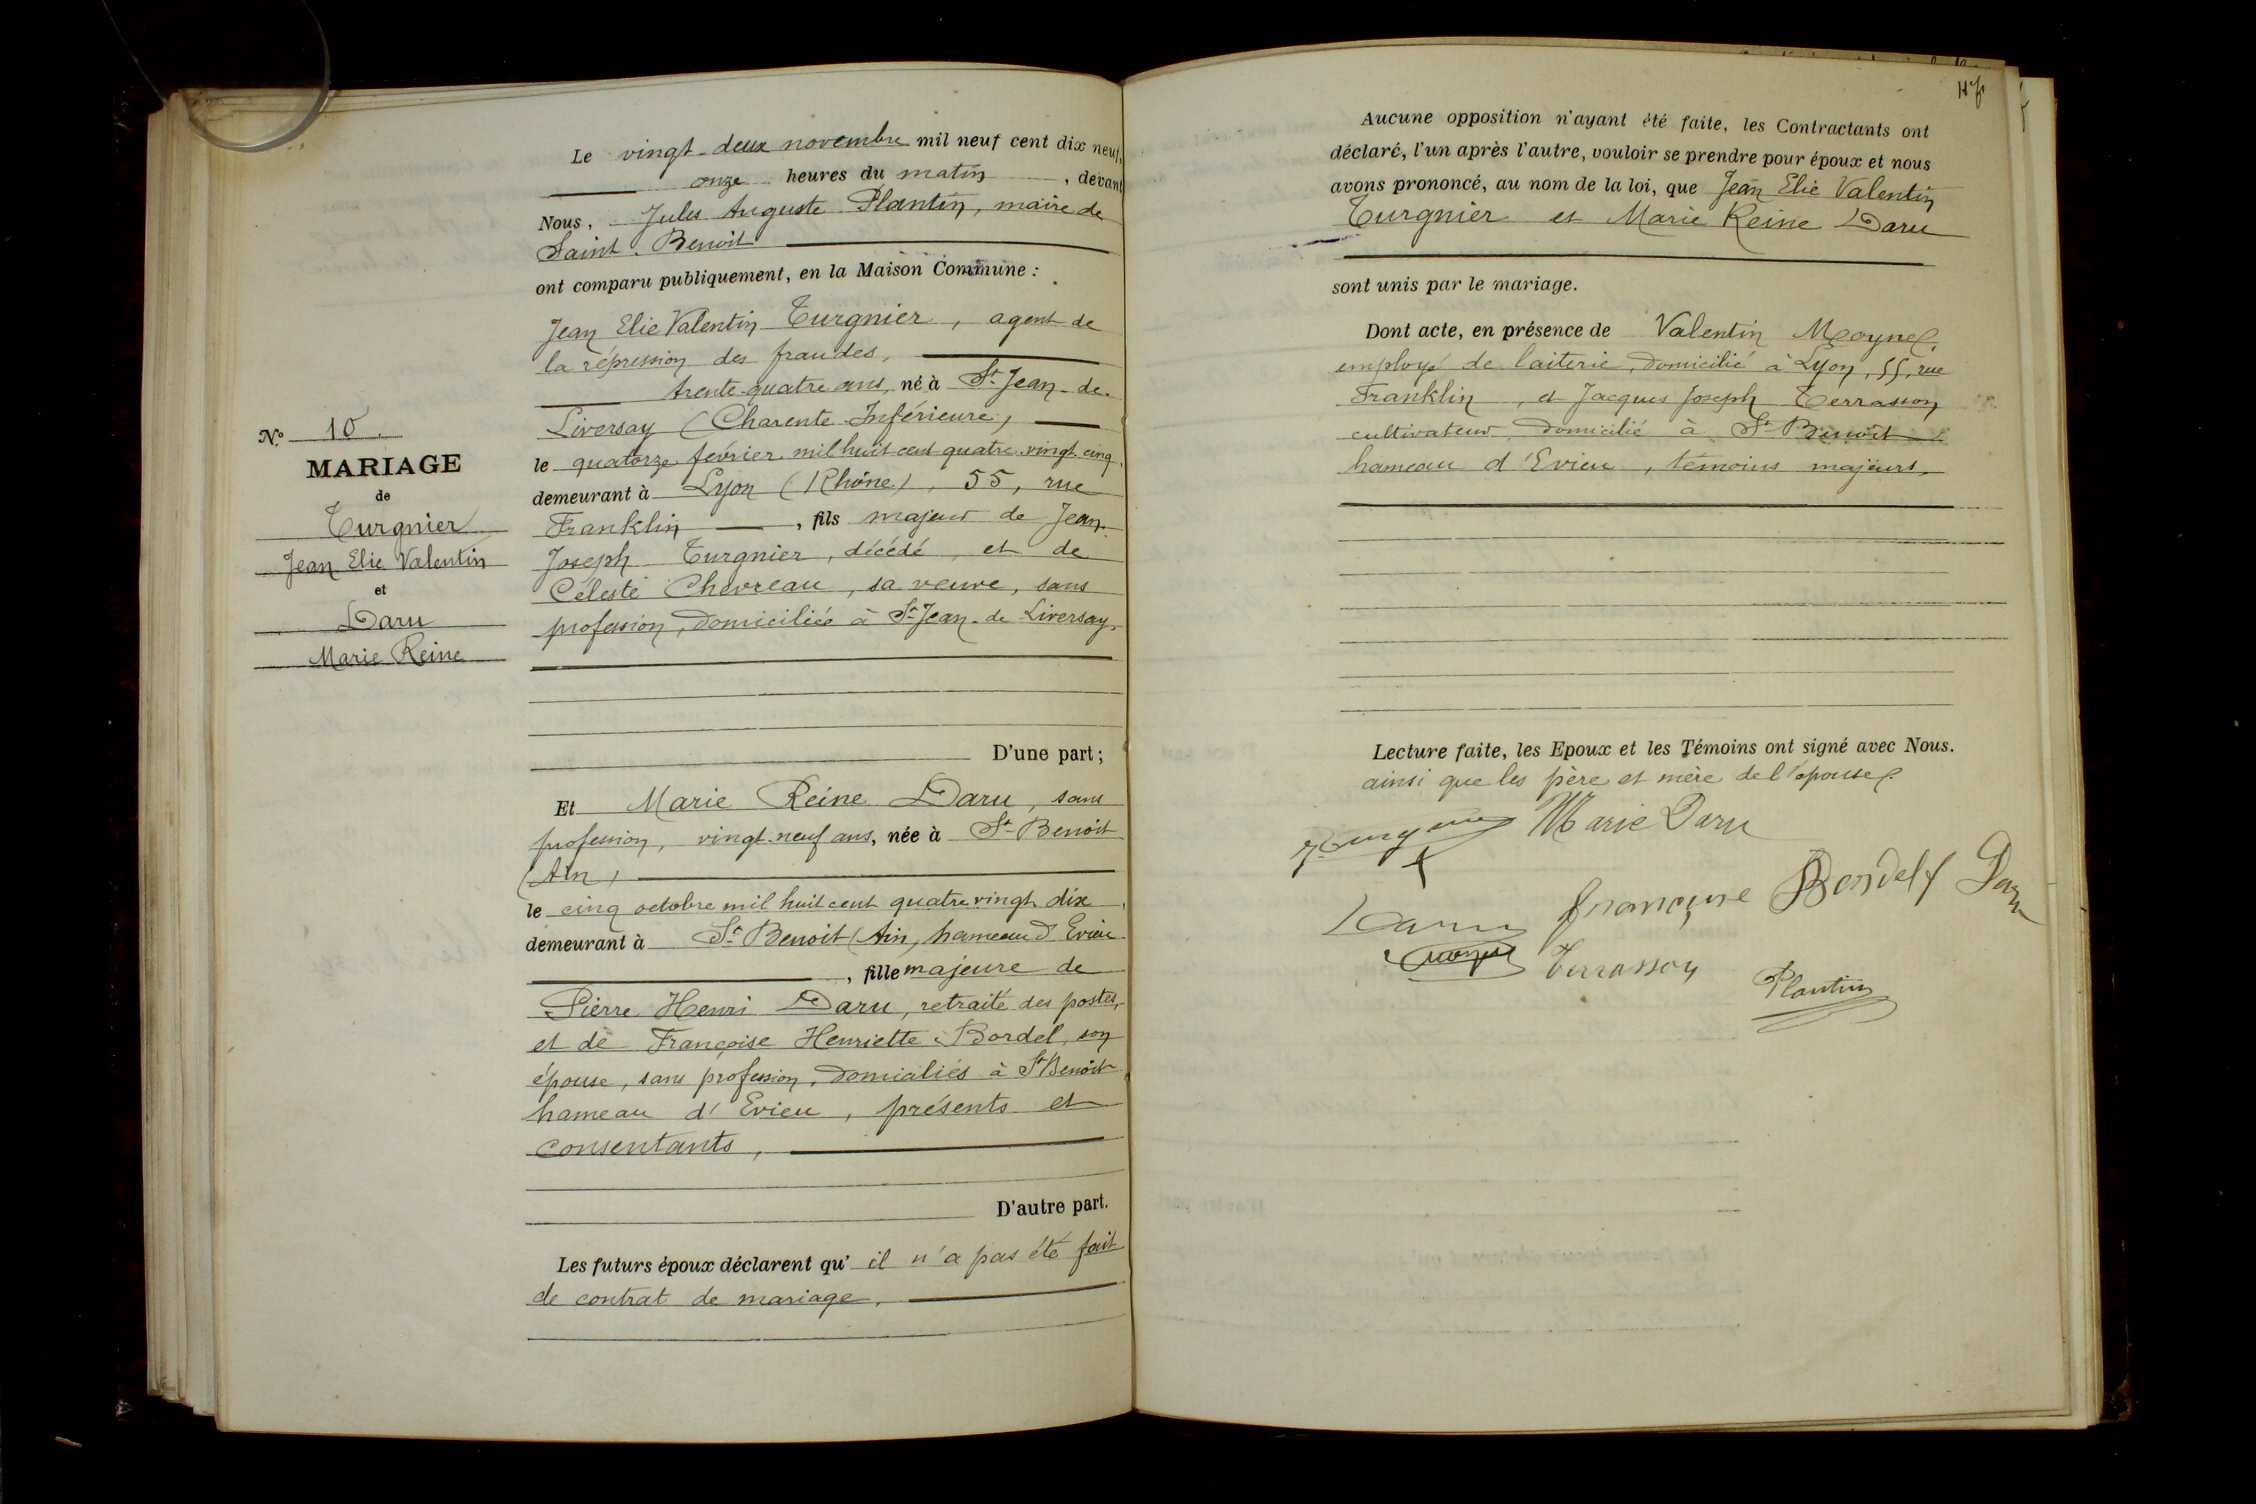 Le vingt-deux novembre mil neuf cent dix neuf,
onze heures du matin, devant
Nous, Jules Auguste Plantin, maire de
Saint-Benoit
ont comparu publiquement, en la Maison Commune :
Jean Elie Valentin Turgnier, agent de
la répression des fraudes,
trente-quatre ans, né à St Jean-de-
Liversay (Charente-Inférieure)
le quatorze février mil huit cent quatre-vingt-cinq,
demeurant à Lyon (Rhône), 55, rue
Franklin, fils majeur de Jean-
Joseph Turgnier, décédé, et de
Céleste Chevreau, sa veuve, sans
profession, domiciliée à St Jean-de-Liversay,
D'une part;
Nº 10.
MARIAGE
de
Turgnier
Jean Elie Valentin
et
Daru
Marie Reine
Et Marie Reine Daru, sans
profession, vingt-neuf ans, née à St Benoit
(Ain)
le cinq octobre mil huit cent quatre vingt dix,
demeurant à St Benoit (Ain, hameau d'Evieu
, fille majeure de
Pierre Henri Daru, retraité des postes,
et de Françoise Henriette Bordel, son
épouse, sans profession, domiciliés à St Benoit
hameau d'Evieu, présents et
consentants,
D'autre part.
Les futurs époux déclarent qu' il n'a pas été fait
de contrat de mariage,
Aucune opposition n'ayant été faite, les Contractants ont
déclaré, l'un après l'autre, vouloir se prendre pour époux et nous
avons prononcé, au nom de la loi, que Jean Elie Valentin
Turgnier et Marie Reine Daru
sont unis par le mariage.
Dont acte, en présence de Valentin Moynel,
employé de laiterie, domicilié à Lyon, 55, rue
Franklin, et Jacques Joseph Terrasson
cultivateur domicilié à St Benoit,
hameau d'Evieu, témoins majeurs,
Lecture faite, les Epoux et les Témoins ont signé avec Nous.
ainsi que les père et mère de l'épouse.
Marie Daru
Daru françoise Bordel f Daru
Terrasson
Plantin